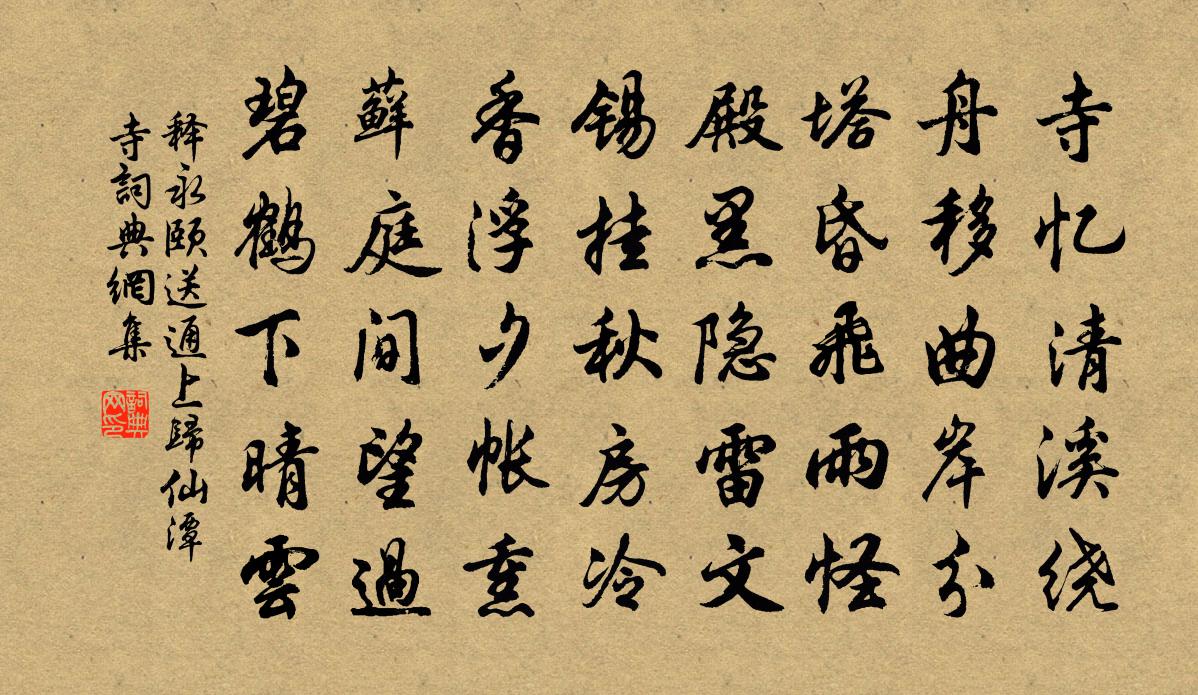 寺忆清溪绕
舟移曲岸分
塔昏飛雨怪
殿黑隐雷文
锡挂秋房冷
香浮夕帐熏
蘚庭间望過
碧鶴下晴雲
释永颐送通上歸仙潭
寺詞典網集
詞典网印